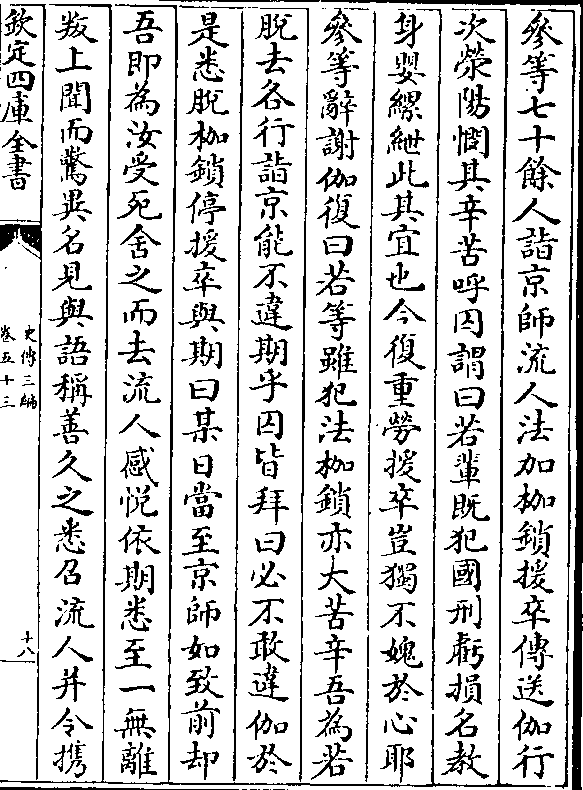 參等七十餘人詣京師流人法加枷鎖援卒傳送伽行
次滎陽憫其辛苦呼囚謂曰若輩既犯國刑虧損名教
身嬰縲紲此其宜也今復重勞援卒豈獨不媿於心耶
參等辭謝伽復曰若等雖犯法枷鎖亦大苦辛吾為若
脫去各行詣京能不違期乎囚皆拜曰必不敢違伽於
是悉脫枷鎖停援卒與期曰某日當至京師如致前却
吾即為汝受死舍之而去流人感悅依期悉至一無離
叛上聞而驚異名見與語稱善久之悉召流人并令攜
欽定四庫全書
史傳三編
卷五十三
十八